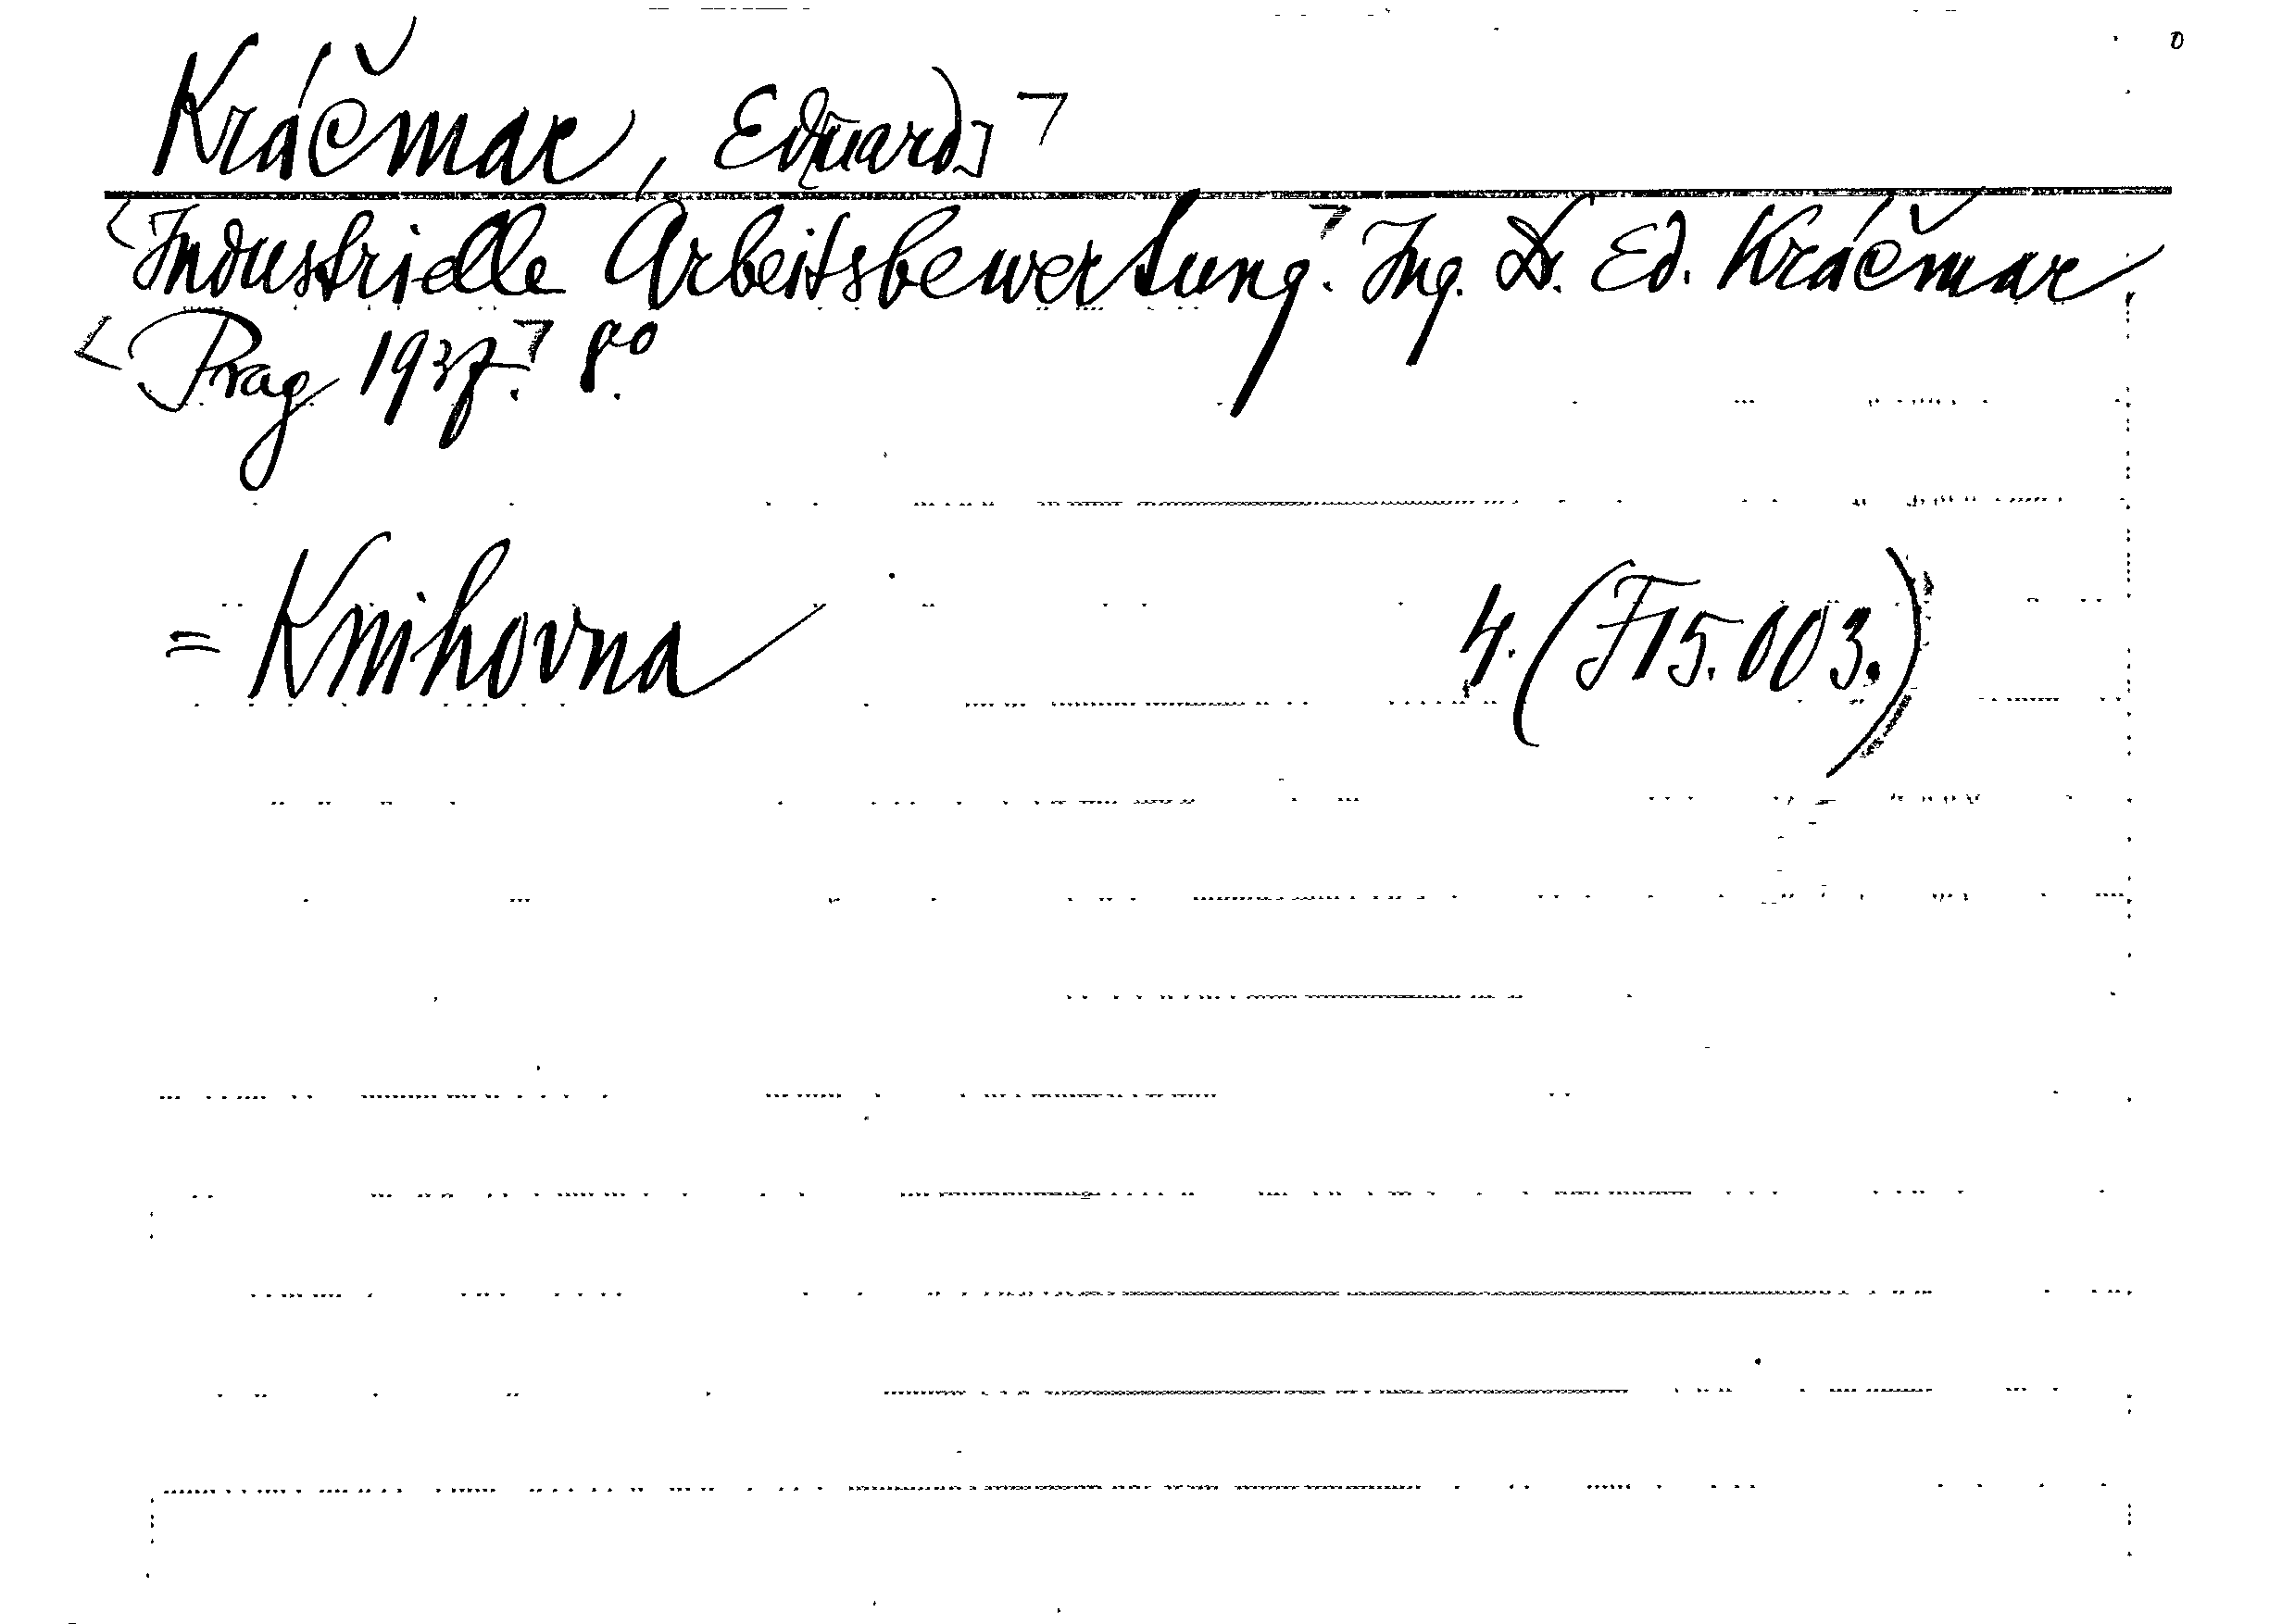 Kráčmar, Eduard
Industrielle Arbeitsbewertung. Ing. Dr. Ed. Kráčmar.
Prag 1937. 8°.
= Knihovna 4. (F15.003.)